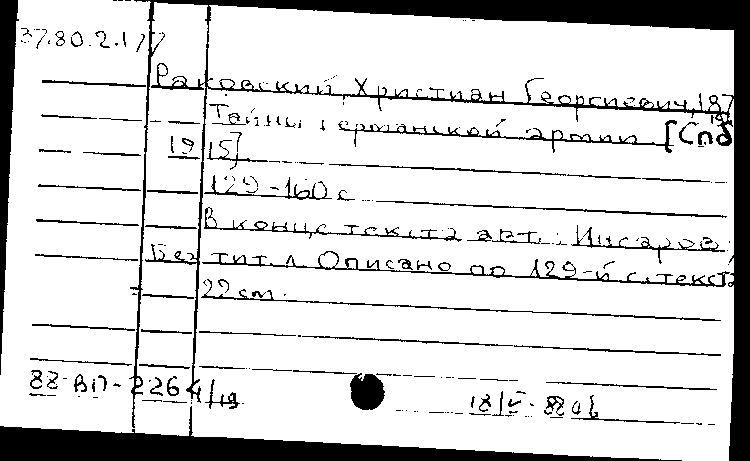 37.80.2.177
Раковский, Христиан Георгиевич, 187
Тайны германской армии [Спб
1915].
129-160 с
В конце текста авт.: Инсаров
Без тит. л. Описано по 129-й с. текста
22 см.
88-ВП-2264/19